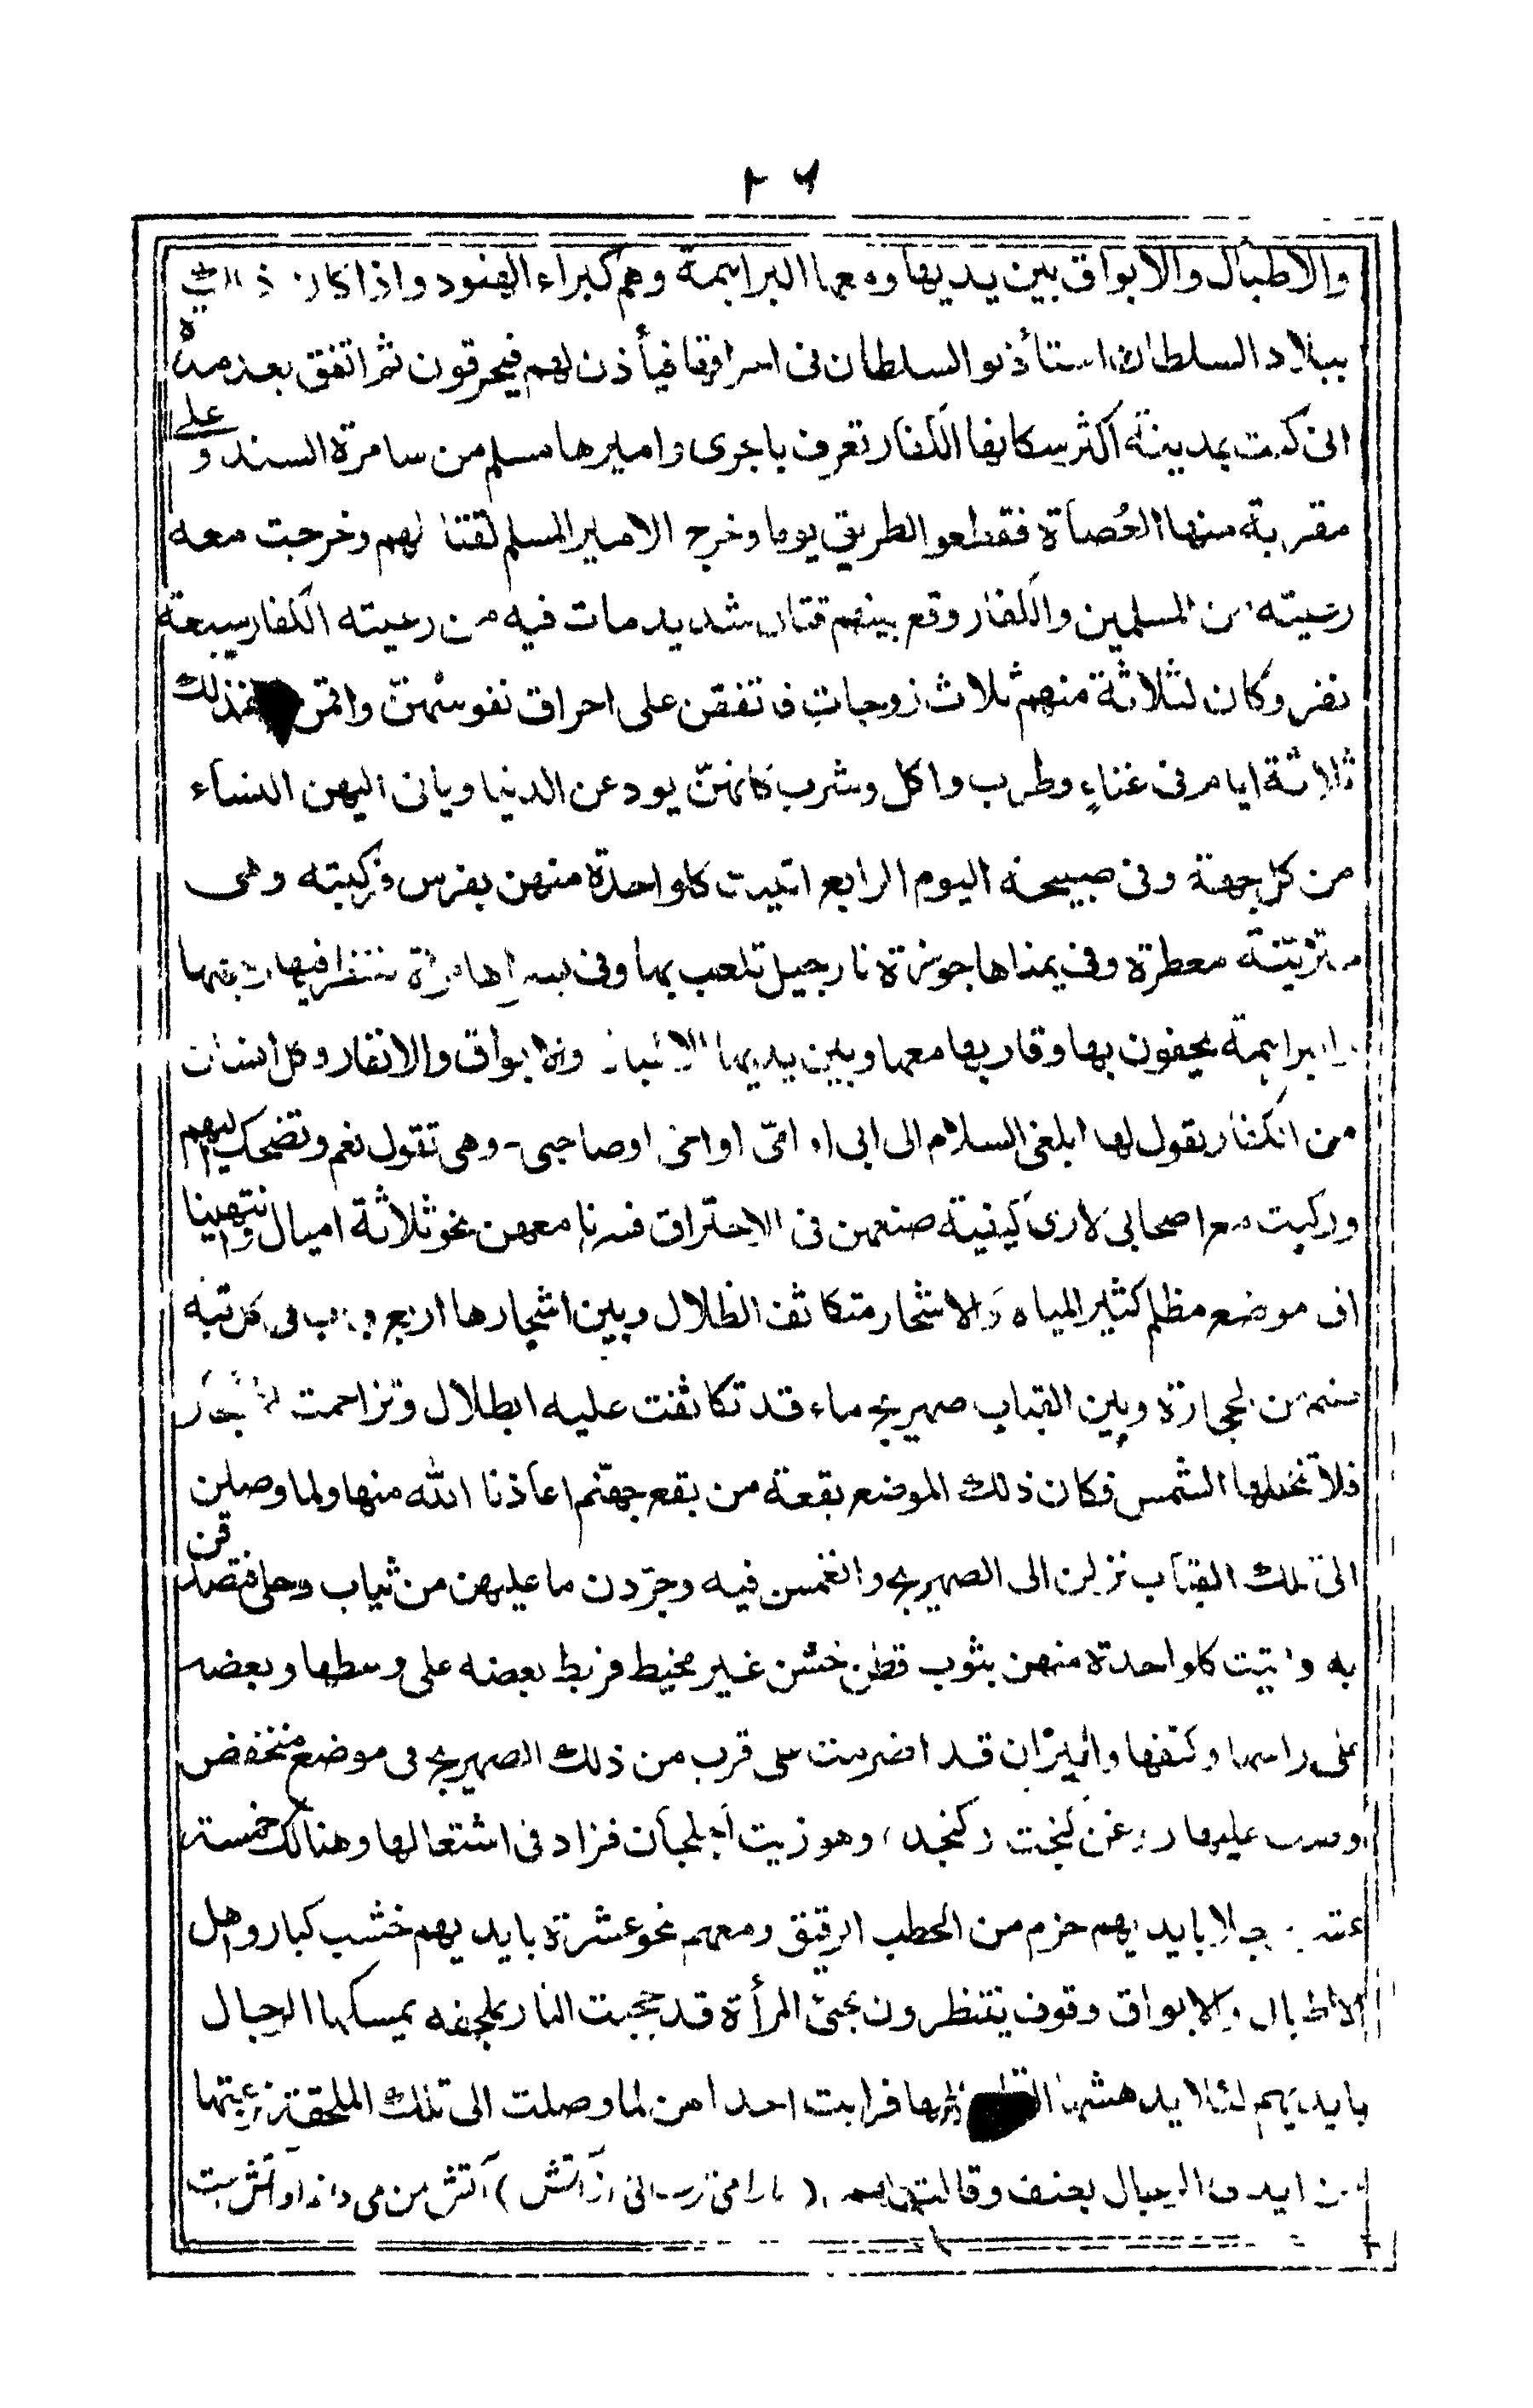 ٢٦
والاطبال والابواق بين يديها ومعها البراهمة وهم كبراء الهنود واذا كان ذالك
ببلاد السلطان استأذنوا السلطان فى احراقها فيأذن لهم فيحرقون ثم اتفق بعد مدة
انى كنت بمدينة اكثر سكانها الكفار تعرف باجرى واميرها مسلم من سامرة السند وعلى
مقربة منها العُصاة فقطعوا الطريق يوما وخرج الامير المسلم لقتالهم وخرجت معه
رعيته من المسلمين والكفار وقع بينهم قتال شديد مات فيه من رعيته الكفار سبعة
نفر وكان لثلاثة منهم ثلاث زوجات فاتفقن على احراق نفوسهنّ واقمن ذلك
ثلاثة ايام فى غناءٍ وطرب واكل وشرب كانهنّ يودعن الدنيا وياتى اليهن النساء
من كل جهة وفى صبيحة اليوم الرابع اتيت كلواحدة منهن بفرس فركبته وهى
متزيّنة معطرة وفى يمناها جوزة نارجيل تلعب بها وفى يسراها مرآة تنظر فيها وجهها
والبراهمة يحفون بها وقاربها معها وبين يديها الاطبال والابواق والانفار وكل انسان
من الكفار يقول لها ابلغى السلام الى ابى او امّى او اخى او صاحبى - وهى تقول نعم وتضحك اليهم
وركبت مع اصحابى لارى كيفية صنعهن فى الاحتراق فسرنا معهن نحو ثلاثة اميال وانتهينا
الى موضع مظلم كثير المياه والاشجار متكاثف الظلال وبين اشجارها اربع قباب فى كل قبة
صنم من الحجارة وبين القباب صهريج ماء قد تكاثفت عليه الظلال وتزاحمت الاشجار
فلا تخللها الشمس فكان ذلك الموضع بقعة من بقع جهنّم اعاذنا الله منها ولما وصلن
الى تلك القباب نزلن الى الصهريج وانغمسن فيه وجرّدن ما عليهن من ثياب وحلى فتصدقن
به واتيت كلواحدة منهن بثوب قطن خشن غير مخيط فربط بعضه على وسطها وبعضه
على راسها وكتفها والنيران قد اضرمت على قرب من ذلك الصهريج فى موضع منخفض
وصب عليها روغن كنجت (كنجد) وهو زيت الجلجان فزاد فى اشتعالها وهنالك خمسة
عشر رجلا بايديهم حزم من الحطب الرقيق ومعهم نحو عشرة بايديهم خشب كبار واهل
الاطبال والابواق وقوف ينتظرون مجئ المرأة قد حجبت النار بملحفة يمسكها الرجال
بايديهم لئلا يدهشها فرايت احدا من لما وصلت الى تلك الملحفة نزعتها
من ايدى الرجال بعنف وقالت لهم (مارا مى ترسانى ازآتش) آتش من مى دانم او آتش ست